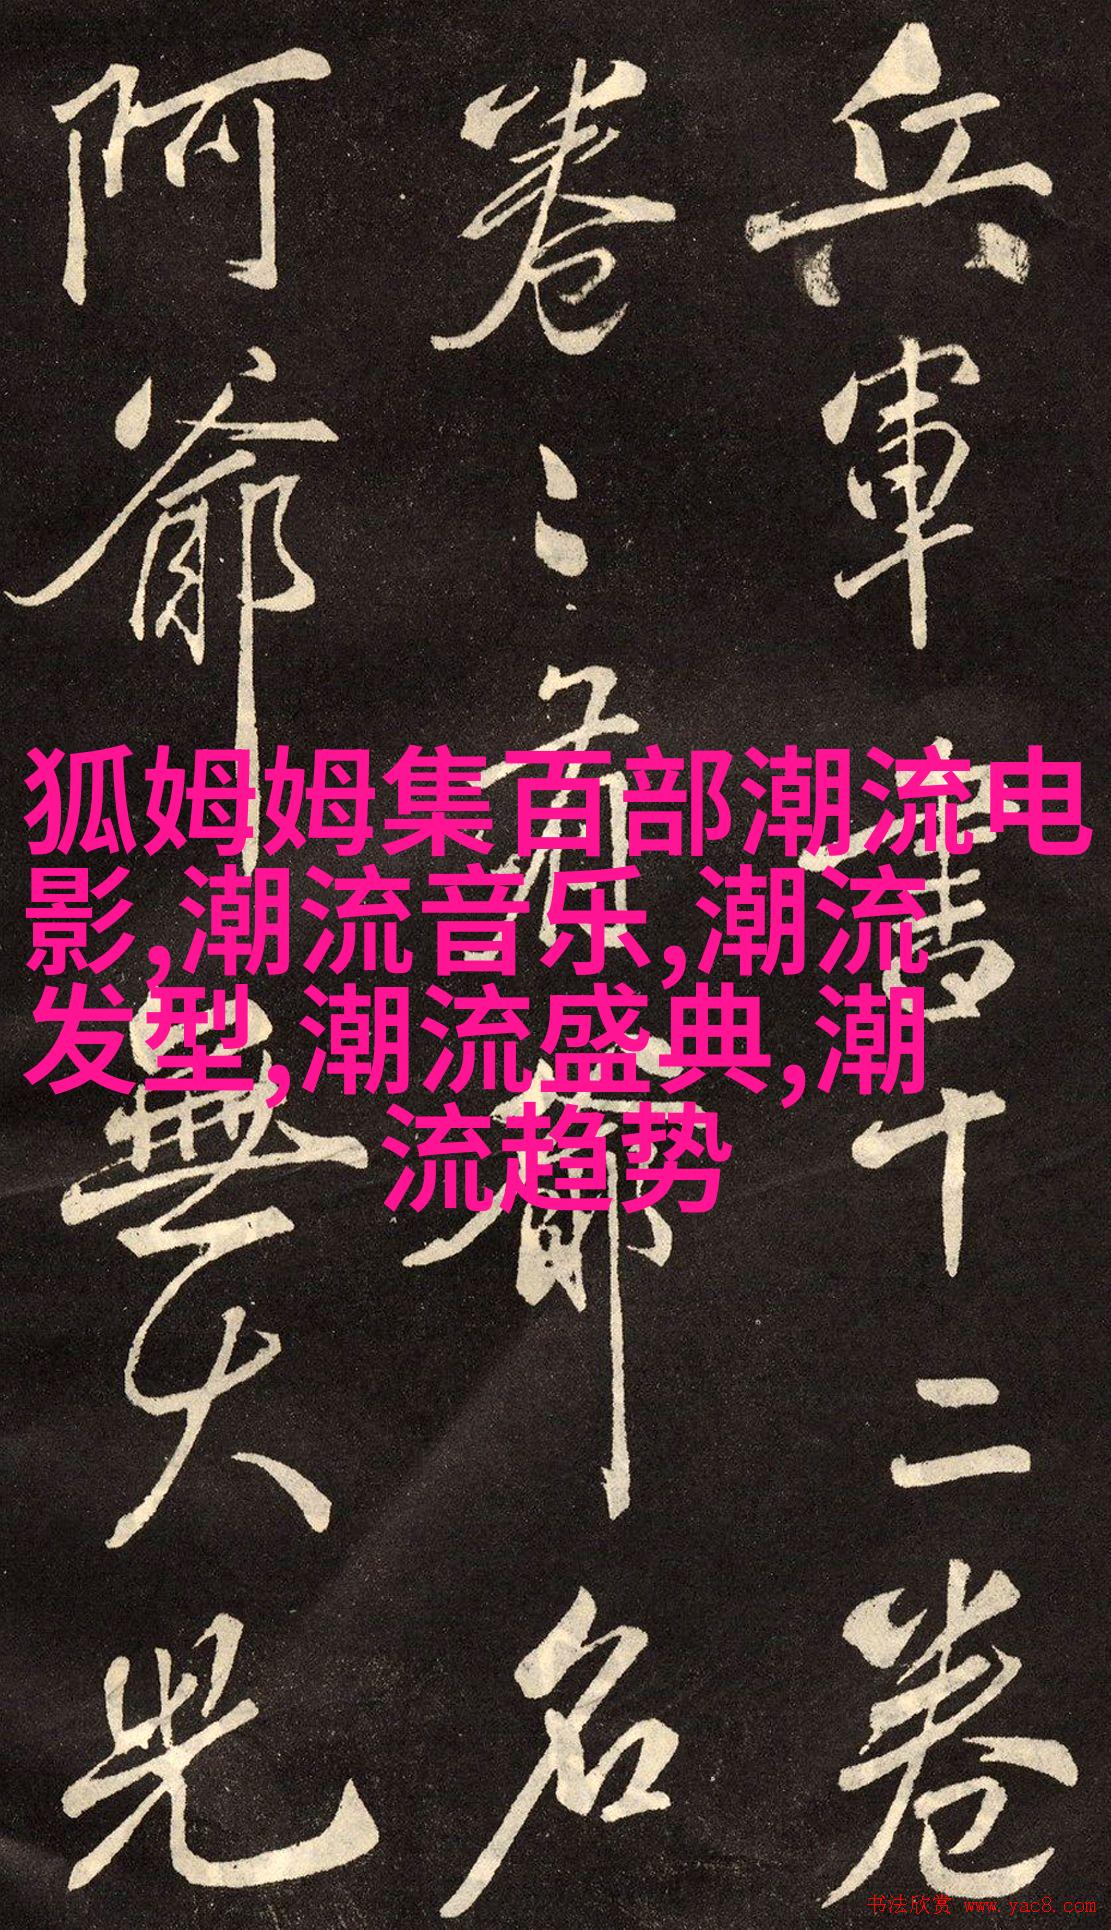 兵軍書十二卷
卷〻有爺名
阿爺無大兒
狐姆姆集百部潮流电
影,潮流音乐,潮流
发型,潮流盛典,潮
流趋势
书法欣赏 www.yac8.com